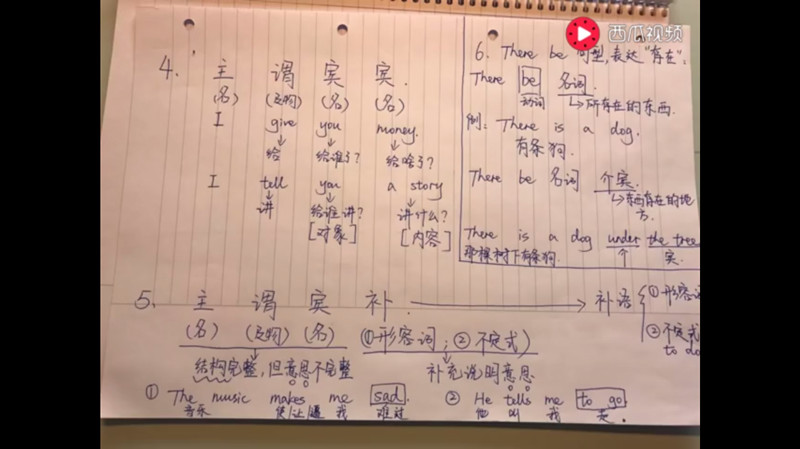 西瓜视频
4. 主 谓 宾 宾.
(名) (及物) (名) (名)
I give you money.
给 给谁了? 给啥了?
I tell you a story
讲 给谁讲? 讲什么?
[对象] [内容]
6. There be 句型,表达“存在”:
There be 名词.
动词 所存在的东西.
例: There is a dog.
有条狗.
There be 名词 介宾.
东西存在的地方.
There is a dog under the tree
那棵树下有条狗. 介 宾.
5. 主 谓 宾 补 → 补语 ①形容词
(名) (及物) (名) (①形容词; ②不定式) ②不定式
to do
结构完整,但意思不完整 补充说明意思
① The music makes me sad. ② He tells me to go.
音乐 使/让 我 难过 他 叫 我 走.